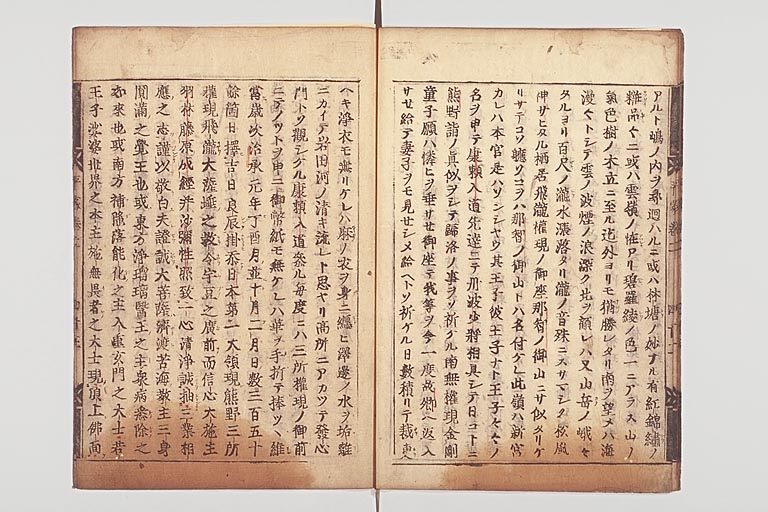 アルト嶋ノ内ヲ尋廻ハルニ或ハ林塘ノ妙ナル有紅錦繍ノ
粧品々ニ或ハ雲嶺ノ恠アリ碧羅綾ノ色一ニアラス山ノ
氣色樹ノ木立ニ至ル迄外ヨリモ猶勝レタリ南ヲ望メハ海
漫々トシテ雲ノ波煙ノ浪深ク北ヲ顧レハ又山岳ノ峨々
タルヨリ百尺ノ瀧水漲落タリ瀧ノ音殊ニスサマシク松風
神サヒタル栖居飛瀧權現ノ御座那智ノ御山ニサ似タリケ
リサテコソ聽ソコヲハ那智ノ御山トハ名付ケレ此嶺ハ新宮
カレハ本宮是ハソンジヤウ其王子彼王子ナト王子々々ノ
名ヲ申テ康頼入道先達ニテ丹波少將相具シテ日コトニ
熊野詣ノ真似ヲシテ歸洛ノ事ヲソ祈ケル南無權現金剛
童子願ハ憐ヒヲ垂サセ御座テ我等ヲ今一度故郷ヘ返入
サセ給テ妻子ヲモ見セシメ給ヘトソ祈ケル日數積リテ裁更
ヘキ浄衣モ無リケレハ麻ノ衣ヲ身ニ纏ヒ澤邊ノ水ヲ垢離
ニカイテ岩田河ノ清キ流レト思ヤリ高所ニアカツテ發心
門トソ觀シケル康頼入道参ル毎度ニハ三所權現ノ御前
ニテノツトヲ申ニ御幣紙モ無ケレハ華ヲ手折テ捧ツヽ維
當歳次治承元年丁酉月並十月二月日數三百五十
餘箇日擇吉日良辰掛忝日本第一大領現熊野三所
權現飛瀧大薩埵之教令宇豆之廣前而信心大施主
羽林藤原成經并沙彌性照致一心清淨誠抽三業相
應之志謹以敬白夫證誠大菩薩濟渡苦海教主三身
圓滿之覺王也或東方淨瑠璃醫王之主衆病悉除之
如來也或南方補陁落能化之主入重玄門之大士若
王子娑婆世界之本主施無畏者之大士現頂上佛面